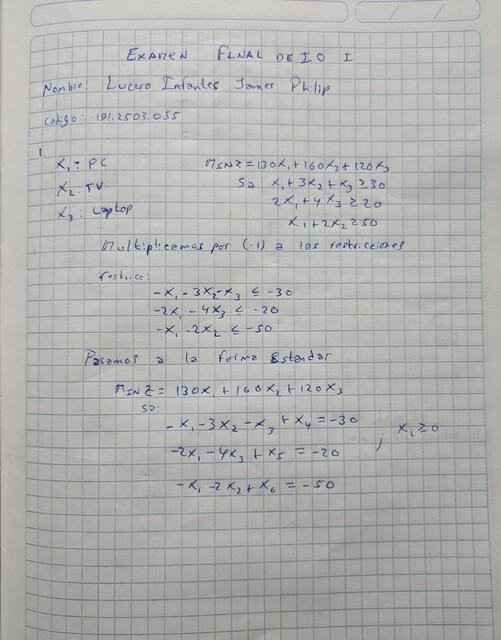 EXAMEN FINAL DE IO I
Nombre: Lucero Infantes James Philip
Codigo: 191.2503.055
1.
X₁: PC
X₂: TV
X₃: Laptop
MINZ = 130X₁ + 160X₂ + 120X₃
Sa X₁ + 3X₂ + X₃ ≥ 30
2X₁ + 4X₃ ≥ 20
X₁ + 2X₂ ≥ 50
Multiplicamos por (-1) a las restricciones
restricc:
-X₁ - 3X₂ - X₃ ≤ -30
-2X₁ - 4X₃ ≤ -20
-X₁ - 2X₂ ≤ -50
Pasamos a la forma Estandar
MINZ = 130X₁ + 160X₂ + 120X₃
Sa:
-X₁ - 3X₂ - X₃ + X₄ = -30
-2X₁ - 4X₃ + X₅ = -20 ; X₁ ≥ 0
-X₁ - 2X₂ + X₆ = -50